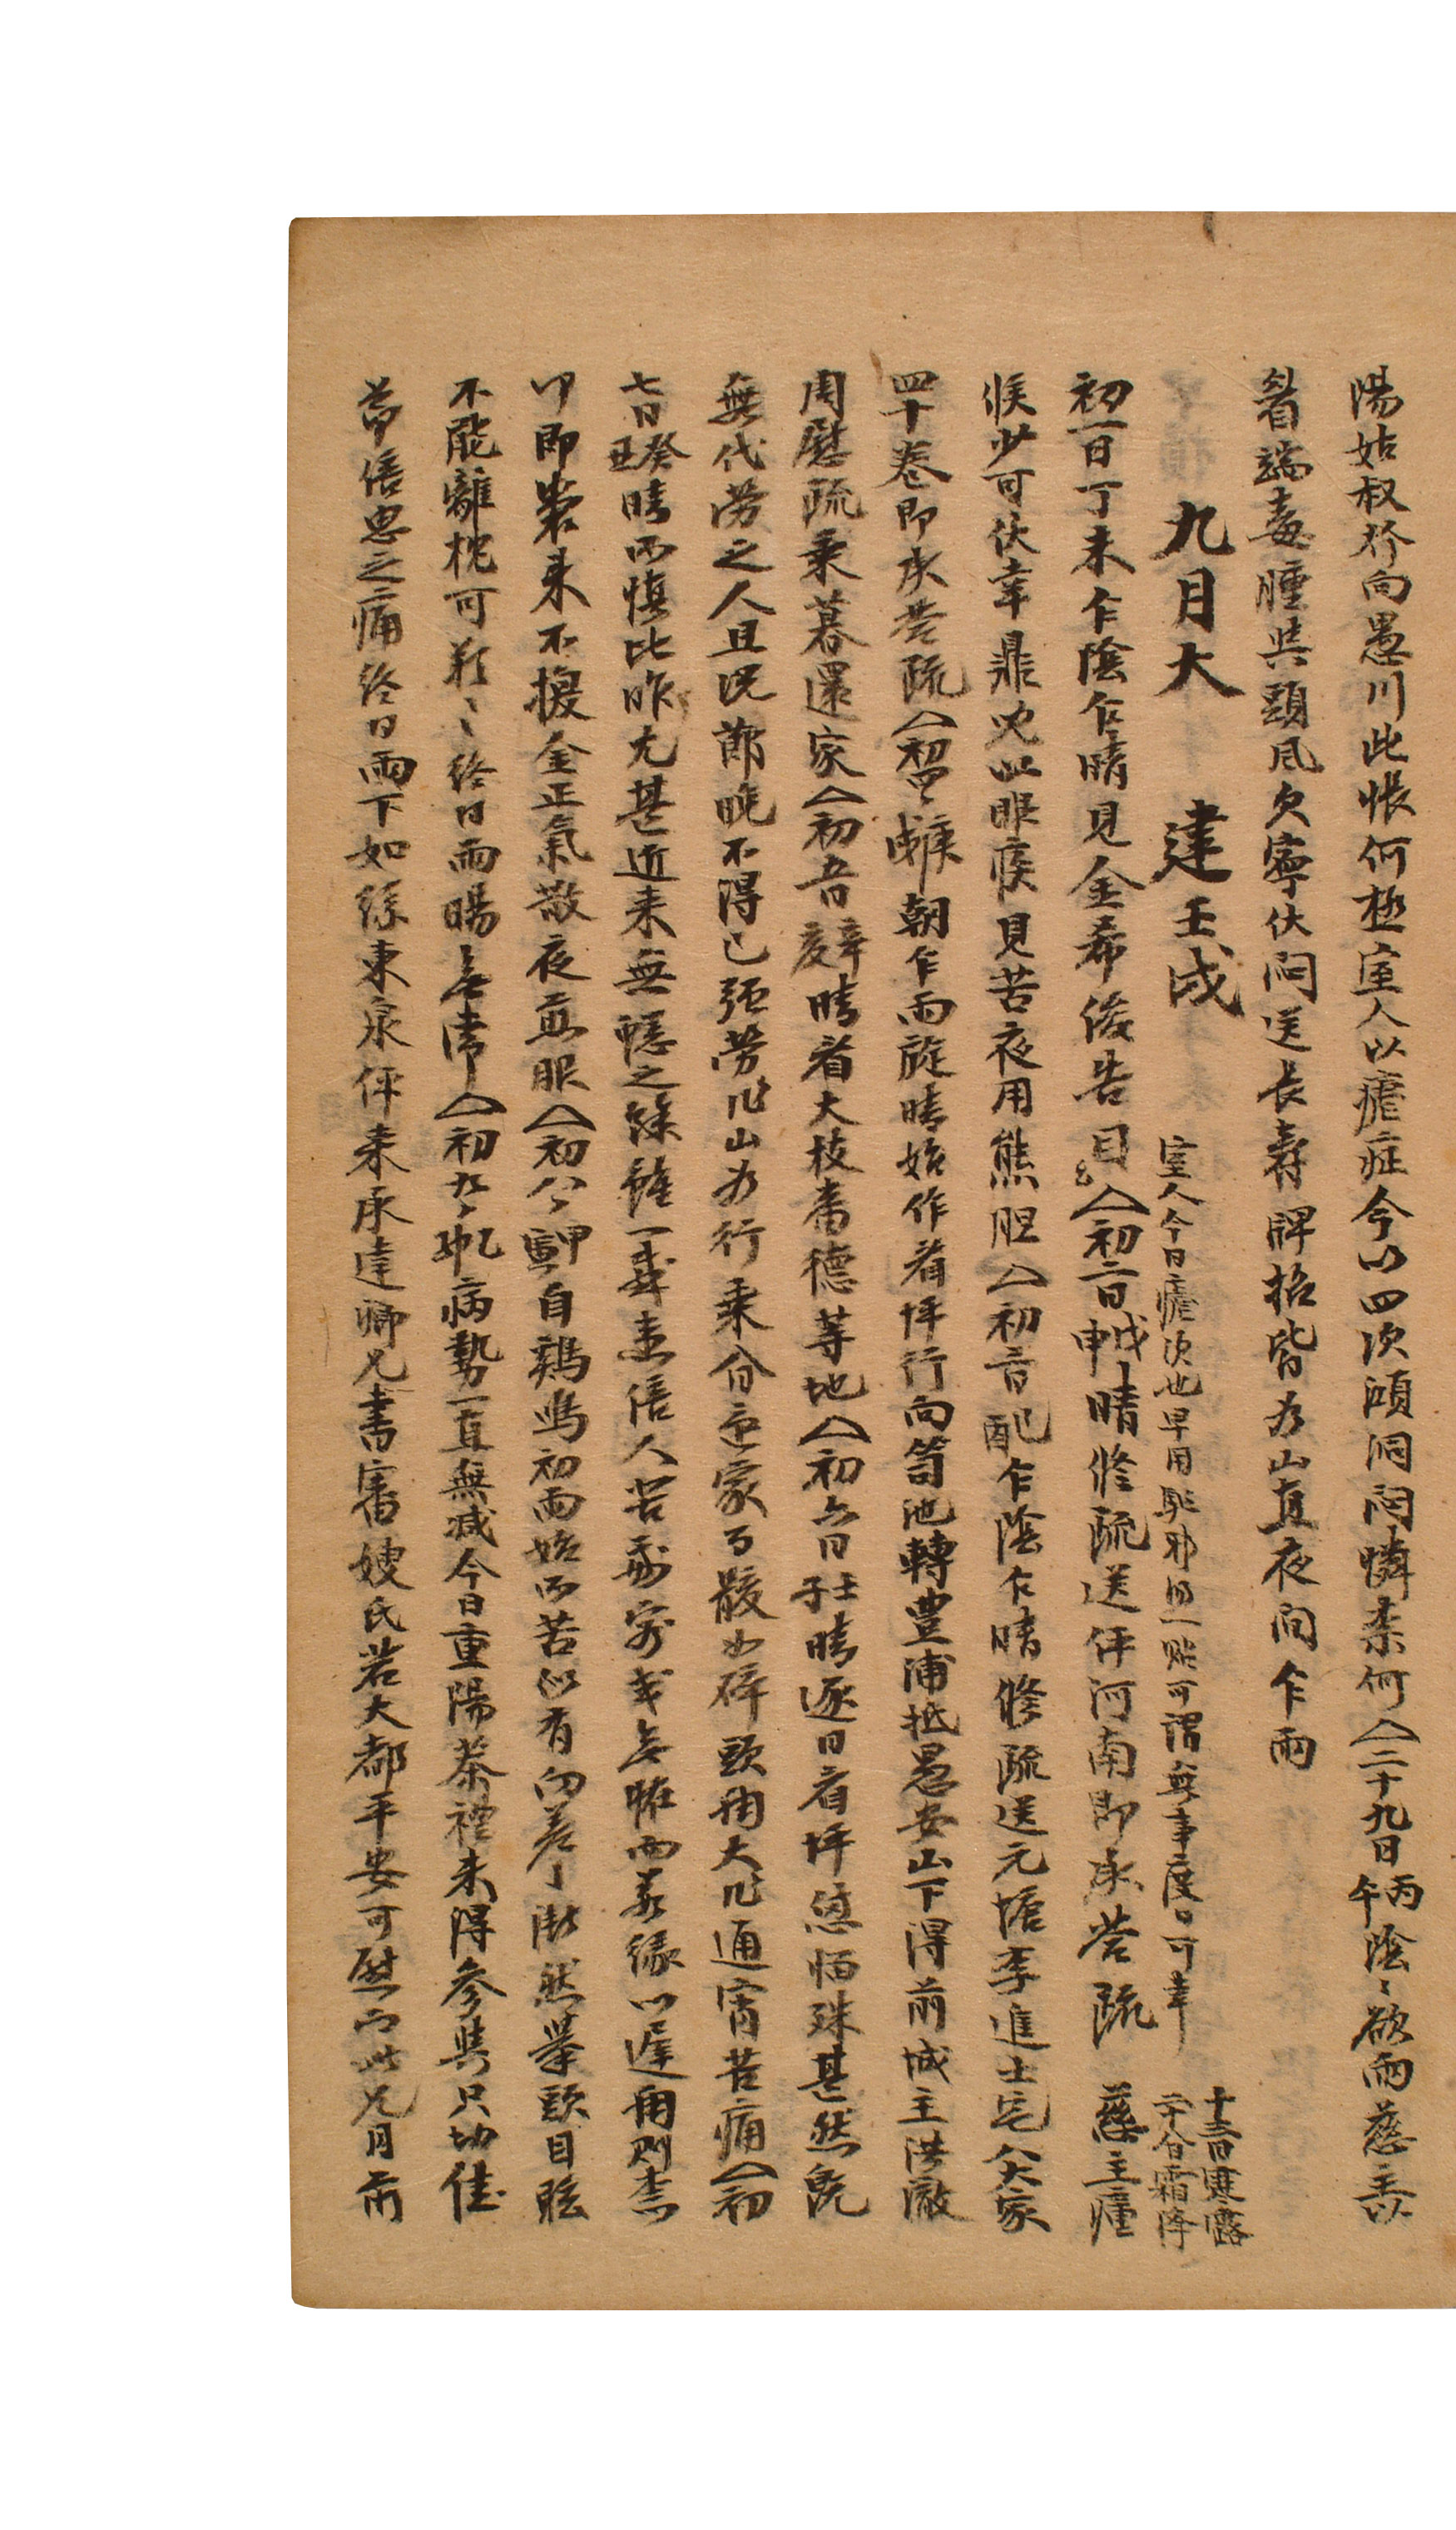 陽姑叔於向愚川此悵何極室人以瘧症今以四次頭洞悶憐柰何△二十九日丙午陰〻欲雨慈主以
脣端毒腫其頭風欠寧伏悶送長壽牌招皆為山直夜間乍雨
九月大 建壬戌 十三日寒露 二十八日霜降
室人今日瘧次也早用駈邪 一貼可謂無事度日可幸
初一日丁未乍陰乍晴見金希俊告目△初二日戊申晴修疏送伻河南即承答疏 慈主瘇
候少可伏幸鼎兒以眼候見苦夜用熊胆△初三日己酉乍陰乍晴修疏送元塘李進士宅八大家
四十卷即承答疏△初四〻庚戌朝乍雨旋晴始作看坪行向筒池轉豊浦抵愚安山下得前城主洪澈
周慰疏乘暮還家△初五日辛亥晴看大枝 德等地△初六日壬子晴逐日看坪憊惱殊甚然旣
無代勞之人且況節晚不得已强勞 山為行乘 還家百骸如碎頭痛大 通宵苦痛△初
七日癸丑晴而愼比昨尤甚近來無 之餘 一 恚倍人苦 寒 無 而 緣以遅用則李
叩即 來不換金正氣散夜 服△初八〻甲寅自鷄鳴初雨始而苦似有向差 漸然擧頭目眩
不能離枕可歎〻終日雨暘無常△初九〻乙卯病勢一直無减今日重陽茶禮未得參與只切佳
節倍思之痛終日雨下如絲東泉伻來承達卿兄書審嫂氏若大都平安可慰而此兄月前